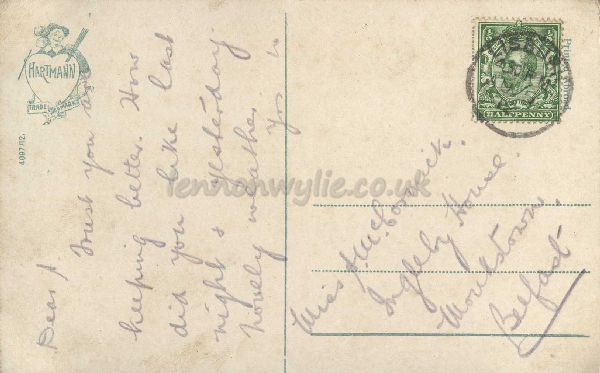 HARTMANN
TRADE MARK
4097/12.
Dear A.
Trust you are
keeping better. How
did you like last
night & yesterday.
Lovely weather.
Yrs
HALFPENNY
lennonwylie.co.uk
Miss A. McCormick.
Ingleby House.
Monkstown.
Belfast